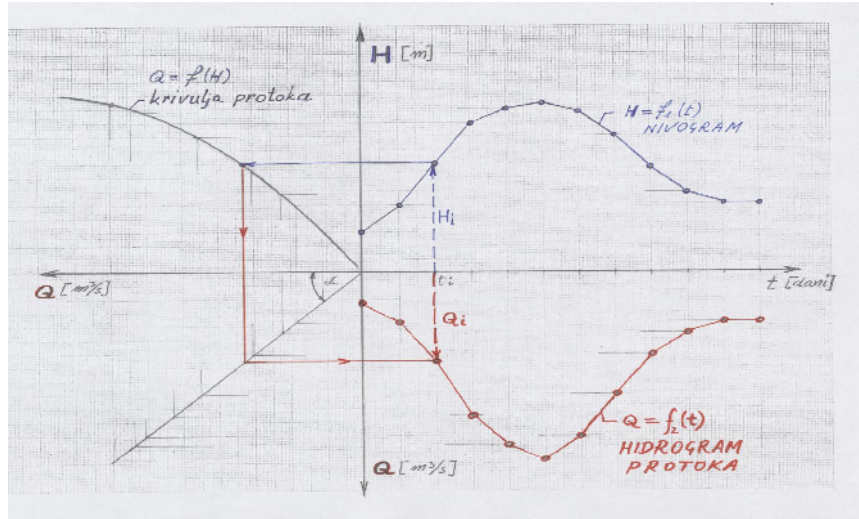 H [m]
Q = f(H)
krivulja protoka
H = f₁(t)
NIVOGRAM
Hi
Q [m³/s]
α
ti
t [dani]
Qi
Q = f₂(t)
HIDROGRAM
PROTOKA
Q [m³/s]